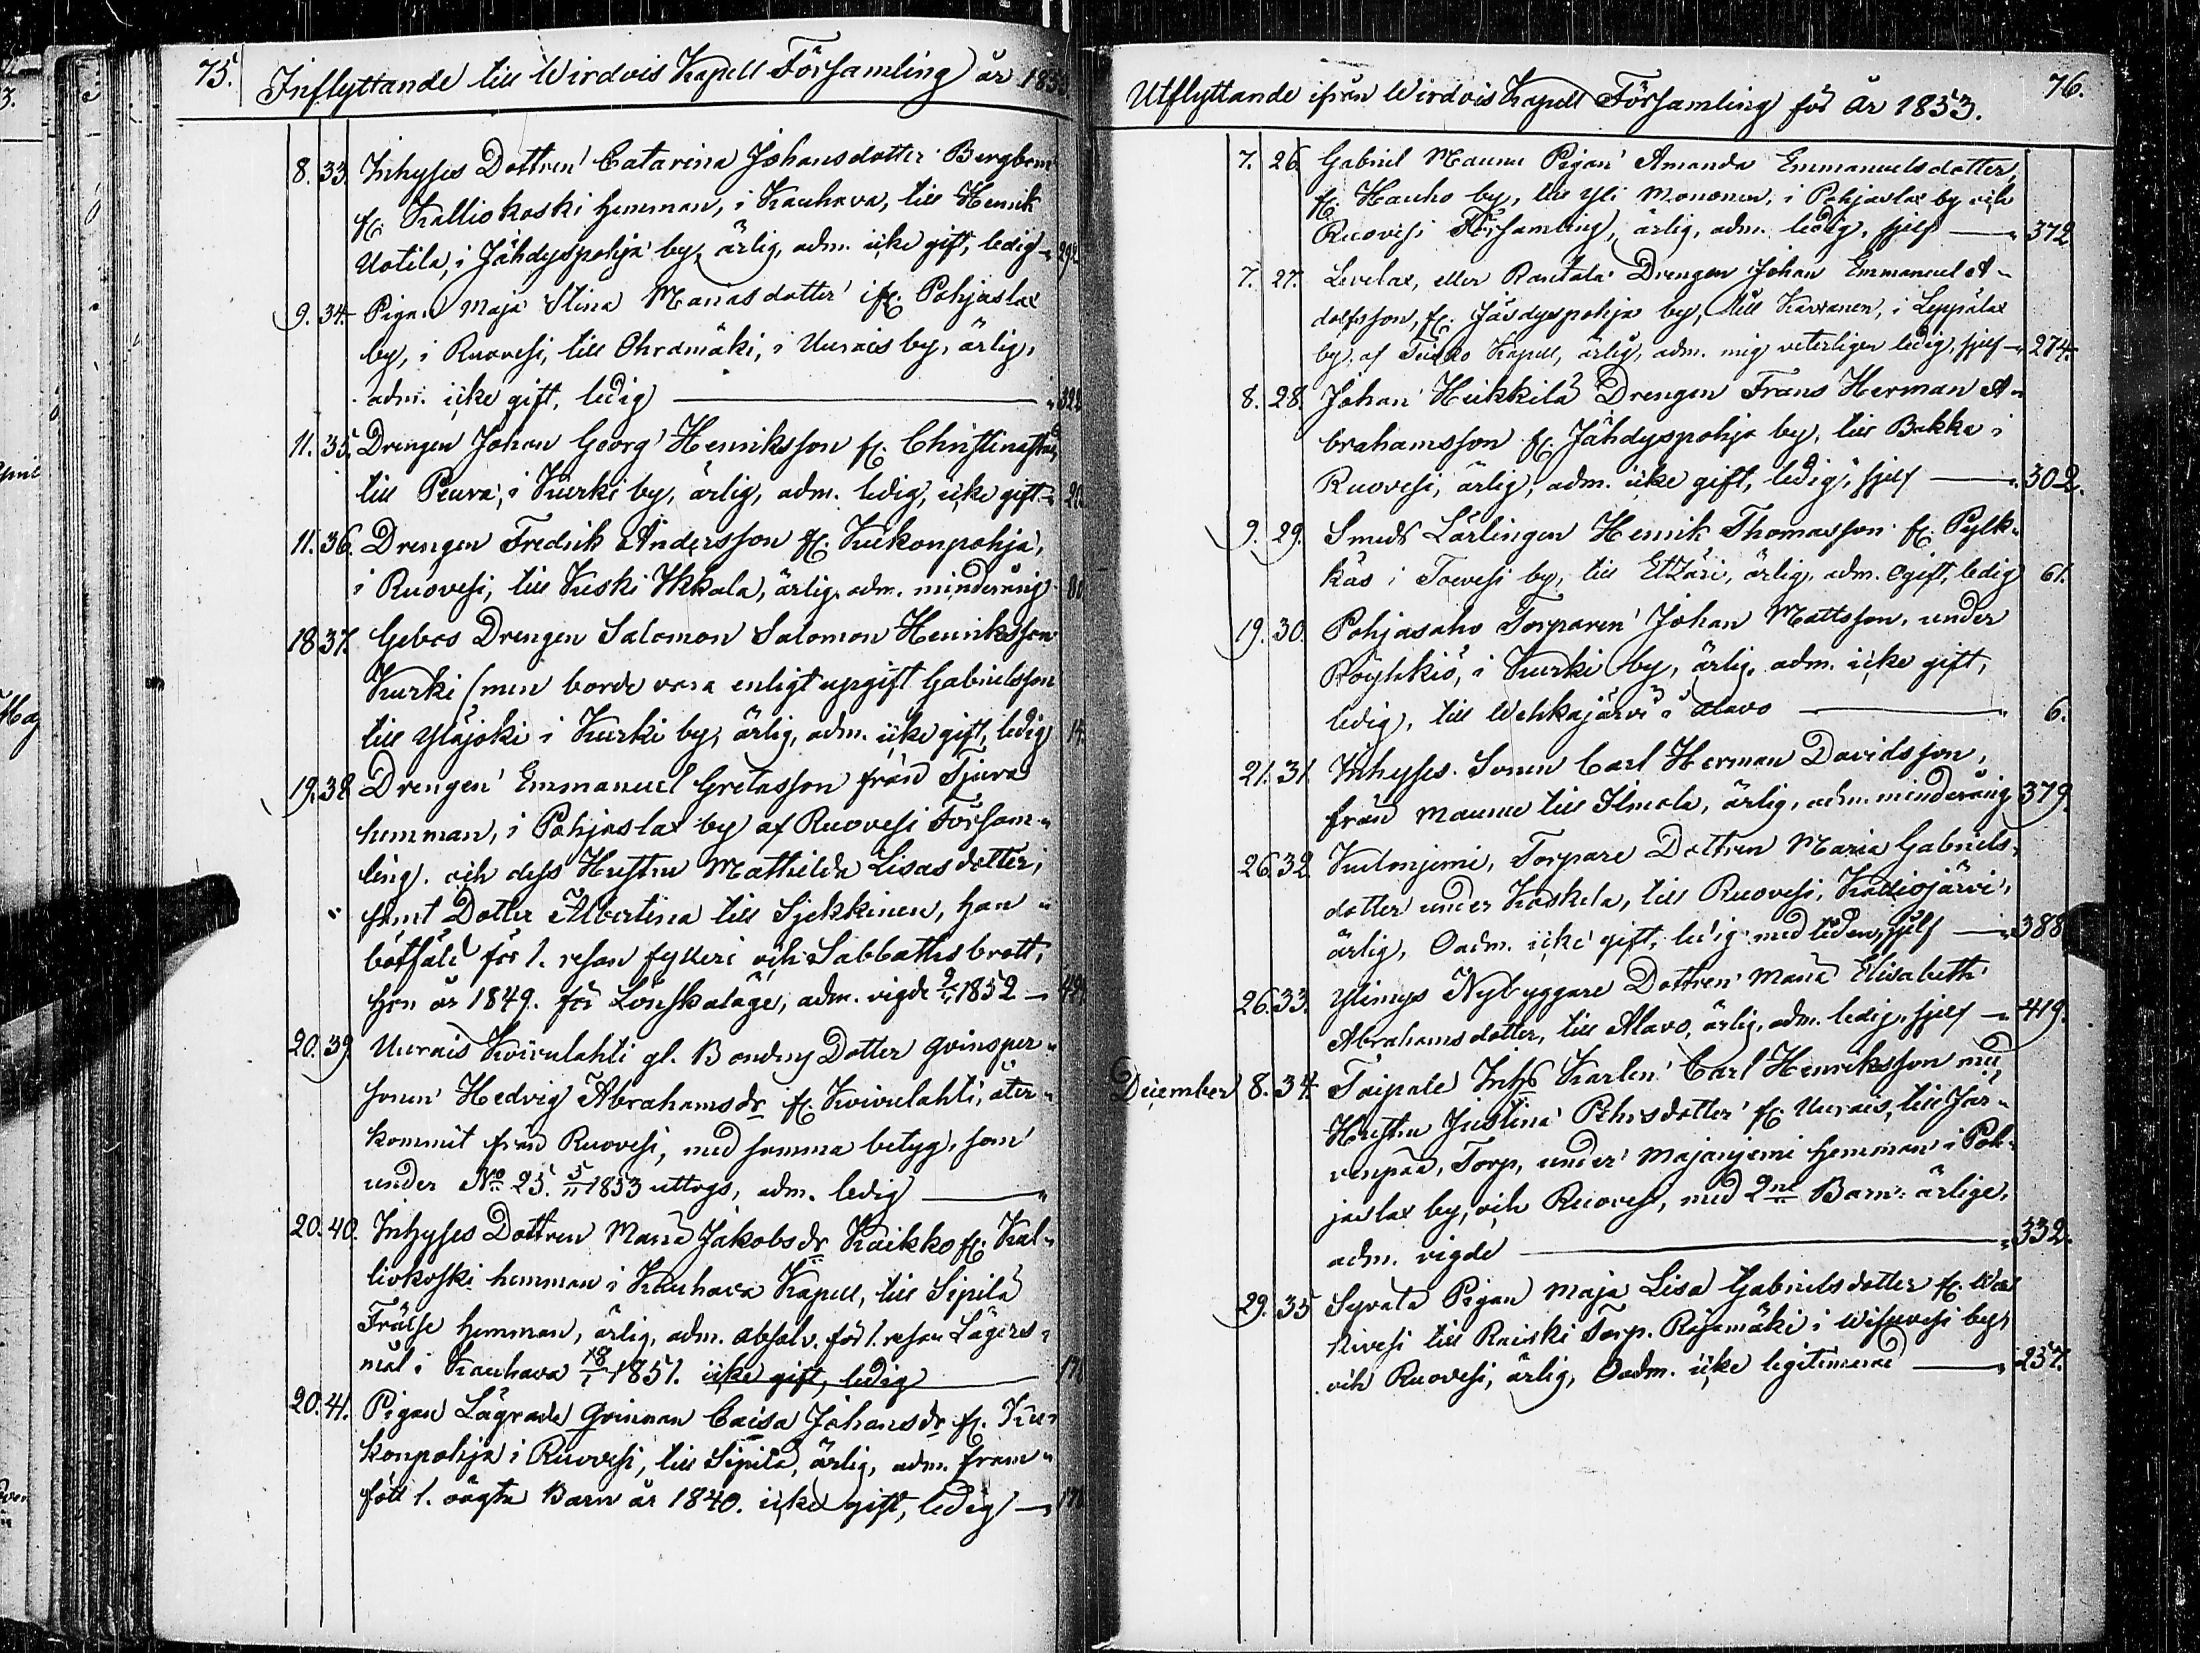 75.
Inflyttande till Wirdois Kapell Församling år 1853
8. 33. Inhyses Dottren Catarina Johansdotter Bergbom
fr. Kalliokoski hemman, i Kauhava, till Henrik
Uotila, i Jähdyspohja by, ärlig, adm. icke gift, ledig 292
9. 34. Pigan Maja Stina Mariasdotter ifr. Pohjaslax
by, i Ruovesi, till Ohramäki, i Uurais by, ärlig,
adm. icke gift, ledig 322
11. 35. Drengen Johan Georg Henriksson fr. Christinestad
till Peura, i Kurki by, ärlig, adm. ledig, icke gift
11. 36. Drengen Fredrik Andersson fr. Kukonpohja,
i Ruovesi, till Keski Ikkala, ärlig, adm. minderårig
18 37. Gebos Drengen Salomon Salomon Henriksson
Kurki (men borde vara enligt upgift Gabrielsson
till Yläjoki i Kurki by, ärlig, adm. icke gift, ledig 14.
19. 38 Drengen Emmanuel Gretasson från Tjura
hemman, i Pohjaslax by af Ruovesi Församling
ling. och dess Hustru Mathilda Lisasdotter,
samt Dotter Albertina till Sjekkinen, han
bötfäld för 1. resan fylleri och Sabbathsbrott,
hon år 1849. för Lönskaläge, adm. vigde 1852
20. 39 Uurais Koirulahti gl. Bondens Dotter qvinsper
sonen Hedvig Abrahamsdr fr. Koirulahti, åter
kommit från Ruovesi, med samma betyg, som
under No 25. 5/11 1853 uttogs, adm. ledig
20. 40. Inhyses Dottren Maria Jakobsdr Kaikko fr. Kal
liokoski hemman i Kauhava Kapell, till Sipilä
Frälse hemman, ärlig, adm. absolv. för 1. resan Lägers
mål i Kauhava 18/1 1851. icke gift, ledig
20. 41. Pigan Lägrade Qvinnan Caisa Johansdr fr. Ku
konpohja i Ruovesi, till Sipilä, ärlig, adm. fram
född 1. oägta Barn år 1840. icke gift, ledig
76.
Utflyttande ifrån Wirdois Kapell Församling för År 1853.
7. 26. Gabriel Maunu Pigan Amanda Emmanuelsdotter,
fr. Hauho by, till Yli Mononen, i Pohjaslax by och
Ruovesi Församling, ärlig, adm. ledig, sjelf 372
7. 27. Levelax, eller Rantala Drengen Johan Emmanuel A
dolfsson, fr. Jäsdyspohja by, till Karranen, i Leppälax
by, af Keuko Kapell, ärlig, adm. mig veterligen ledig, sjelf 274.
8. 28. Johan Heikkilä Drengen Frans Herman A
brahamsson fr. Jähdyspohja by, till Bakka i
Ruovesi, ärlig, adm. icke gift, ledig, sjelf 302.
9. 29. Smeds Lärlingen Henrik Thomasson fr. Pylk
käs i Toevesi by, till Etzäri, ärlig, adm. ogift, ledig 61.
19. 30. Pohjasaho Torparen Johan Mattsson, under
Röyhkiö, i Kurki by, ärlig, adm. icke gift,
ledig, till Wehkajärvi i Alavo 6.
21. 31. Inhyses Sonen Carl Herman Davidsson,
från Maunu till Ilmola, ärlig, adm. minderårig 379.
26. 32 Kulonjemi, Torpare Dottren Maria Gabriels
dotter under Koskela, till Ruovesi, Kadiojärvi,
ärlig, Oadm. icke gift, ledig med tiden, sjelf 388
26. 33. Ylimys Nybyggare Dottren Maria Elisabeth
Abrahamsdotter, till Alavo, ärlig, adm. ledig, sjelf 419.
December 8. 34. Taipale Inhs Karlen Carl Henriksson med
Hustru Justina Pehrsdotter fr. Uurais, till Jär
venpää, Torp, under Majanjemi hemman i Poh
jaslax by, och Ruovesi, med 2ne Barn ärlige,
adm. vigde 332.
29. 35 Pigan Maja Lisa Gabrielsdotter fr.
kivesi till Raiski Torp. Rajamäki i Wisuvesi by,
och Ruovesi, ärlig, Oadm. icke legitimerad 257.